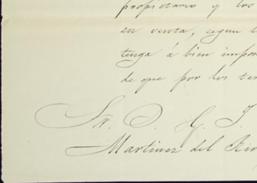 propietario y los
en venta, segun
tenga á bien
de que por los
Sr. D. G.
Martinez del